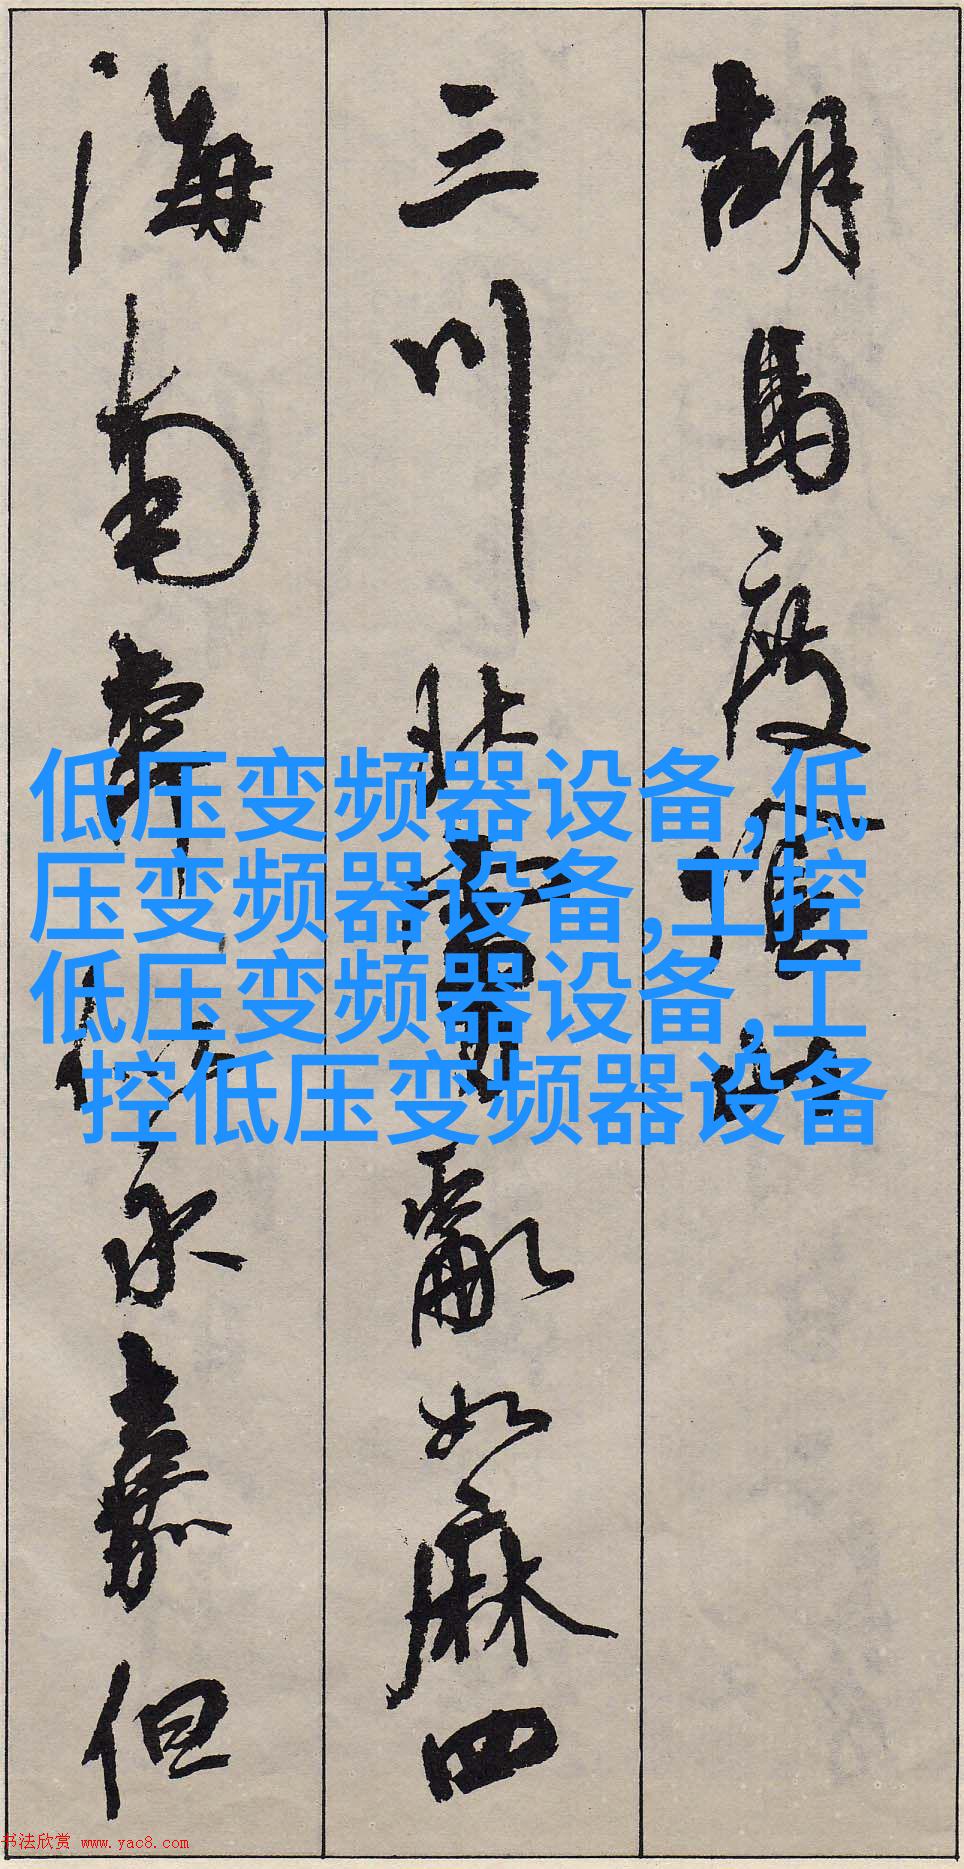 胡馬度陰山
三川北虜亂如麻四
海南奔似永嘉但
低压变频器设备,低
压变频器设备,工控
低压变频器设备,工
控低压变频器设备
书法欣赏 www.yac8.com